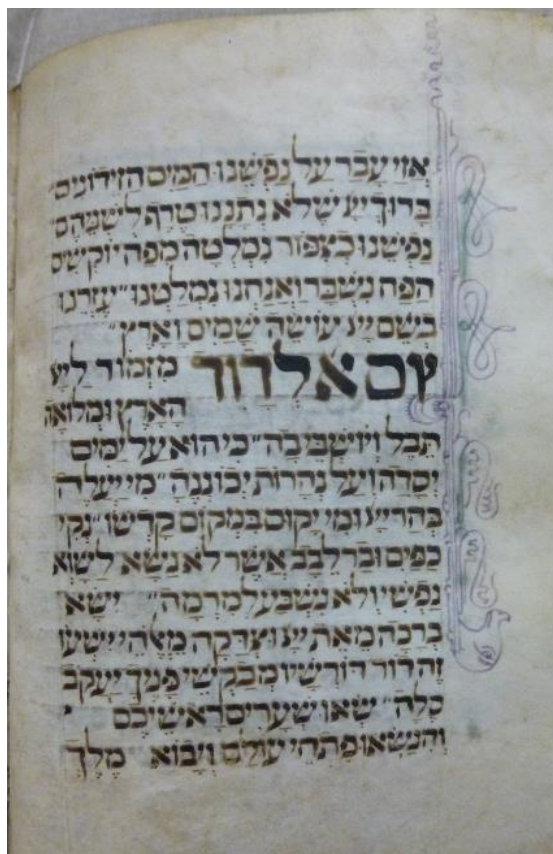 אזי עבר על נפשנו המים הזידונים
ברוך ייי שלא נתננו טרף לשניהם
נפשנו כצפור נמלטה מפח יוקשים
הפח נשבר ואנחנו נמלטנו״ עזרנו
בשם ייי עושה שמים וארץ״
עם אלדוד מזמור לייי
הארץ ומלואה
תבל ויושבי בה״ כי הוא על ימים
יסדה ועל נהרות יכוננה״ מי יעלה
בהר ייי ומי יקום במקום קדשו״ נקי
כפים ובר לבב אשר לא נשא לשוא
נפשי ולא נשבע למרמה״ ישא
ברכה מאת ייי וצדקה מאלהי ישעו
זה דור דורשיו מבקשי פניך יעקב
סלה״ שאו שערים ראשיכם
והנשאו פתחי עולם ויבוא מלך